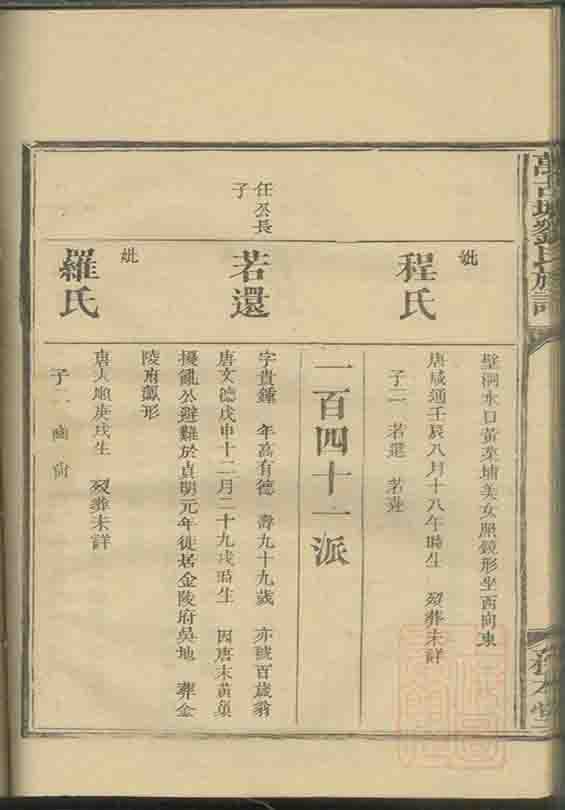 萬古壩劉氏族譜
壁洞水口黃來埔美女照鏡形坐西向東
妣
程氏
唐咸通壬辰八月十八午時生 歿葬未詳
子二 若還 若
一百四十一派
任公長子
若還
字貴鍾 年高有德 壽九十九歲 亦號百歲翁
唐文德戊申十二月二十九戌時生 因唐末黃巢
擾亂公避難於貞明元年徙居金陵府吳地 葬金
陵府獅形
妣
羅氏
唐大順庚戌生 歿葬未詳
子二